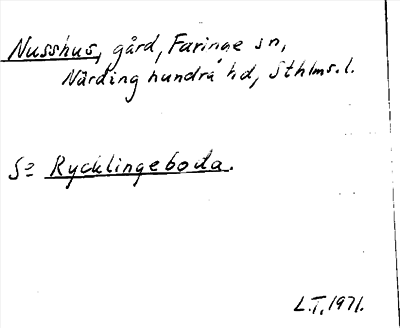 Nusshus, gård, Faringe sn,
Närdinghundra hd, Sthlms. l.
Se Rycklingeboda.
L.T. 1971.